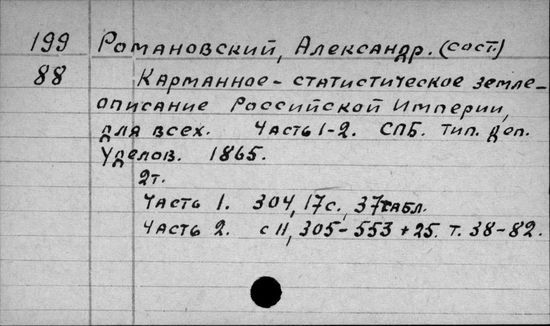 199 Романовский, Александр. (сост.)
88 Карманное-статистическое земле-
описание Российской Империи,
для всех. Часть 1-2. СПБ. тип. Деп.
Уделов. 1865.
2т.
Часть 1. 304, 17 с., 37 табл.
Часть 2. с II, 305-553 + 25. т. 38-82.